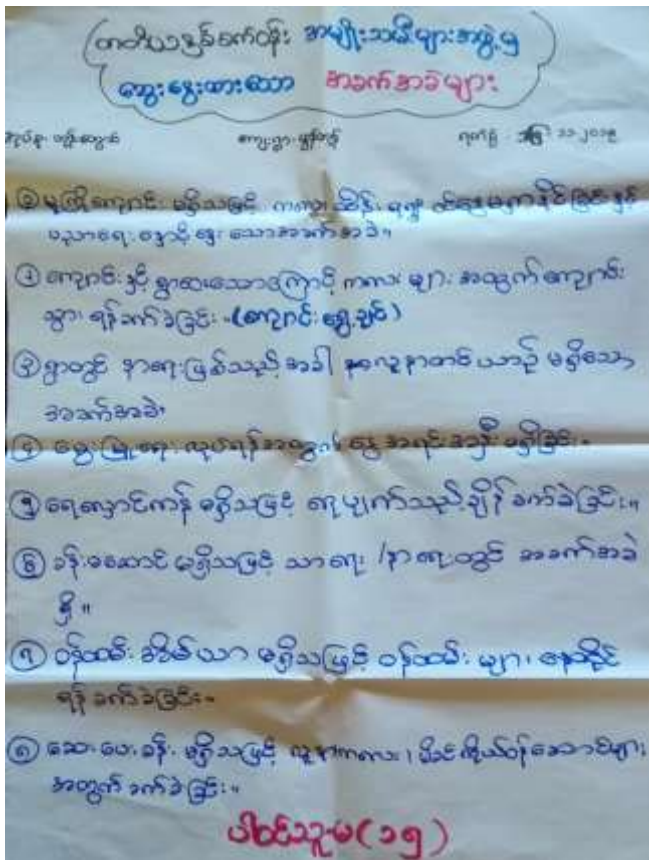 တတိယနှစ်စက်ဝန်း အမျိုးသမီးများအဖွဲ့မှ
ဆွေးနွေးထားသော အခက်အခဲများ
ကျေးရွာ-
ရက်စွဲ - ၁၁-၂၀၁၉
① မူကြိုကျောင်း မရှိသဖြင့် ကလေး ထိန်း ရ၍ နိုင်ခြင်းနှင့်
ပညာရေး နှောင့်နှေး သောအခက်အခဲ။
② ကျောင်း နှင့် ရွာဝေးသောကြောင့် ကလေး များ အတွက် ကျောင်း
သွား ရန် ခက်ခဲခြင်း။ (ကျောင်းရွှေ့ချင်)
③ ရွာတွင် နာရေးဖြစ်သည့်အခါ လူနာတင်ယာဉ် မရှိသော
အခက်အခဲ၊
④ မွေးမြူရေး လုပ်ရန်အတွက် ငွေ အရင်းအနှီး မရှိခြင်း။
⑤ ရေလှောင်ကန် မရှိသဖြင့် ရေပျက်သည့်ချိန် ခက်ခဲခြင်း။
⑥ ခန်းမဆောင် မရှိသဖြင့် သာရေး/နာရေးတွင် အခက်အခဲ
ရှိ။
⑦ ဝန်ထမ်း အိမ်ယာ မရှိသဖြင့် ဝန်ထမ်း များ နေထိုင်
ရန် ခက်ခဲခြင်း။
⑧ ဆေးပေးခန်း မရှိသဖြင့် လူနာကလေး၊ မိခင်ကိုယ်ဝန်ဆောင်များ
အတွက် ခက်ခဲခြင်း။
ပါဝင်သူ-မ(၁၅)